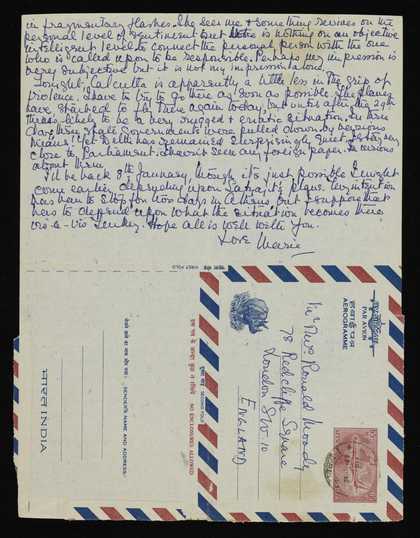 in fragmentary flashes. She sees me & something revives on the
personal level of sentiment but there is nothing on an objective
intelligent level to connect the personal person with the one
who is called upon to be responsible. Perhaps my impression is
very subjective but it is not my impression alone.
Tonight, Calcutta is apparently a little less in the grip of
violence. I have to try to go there as soon as possible. The planes
have started to fly there again today, but until after the 29th
there's likely to be a very rugged & erratic situation. In three
days three state Governments were pulled down by various
means! Yet Delhi has remained surprisingly quiet & I stay very
close to Parliament. I haven't seen any foreign paper. I'm curious
about them.
I'll be back 8th January, though it's just possible I might
come earlier depending upon plans. My intention
was to stop for two days in Athens but I suppose that
has to depend upon what the situation becomes there
vis-a-vis Turkey. Hope all is well with you.
Love Marie
FIRST FOLD
भारत INDIA
SENDER'S NAME AND ADDRESS:-
SECOND FOLD
NO ENCLOSURES ALLOWED
हवाई पत्र
PAR AVION
AEROGRAMME
Mr & Mrs Ronald Moody
78 Redcliffe Square
London S.W. 10
ENGLAND